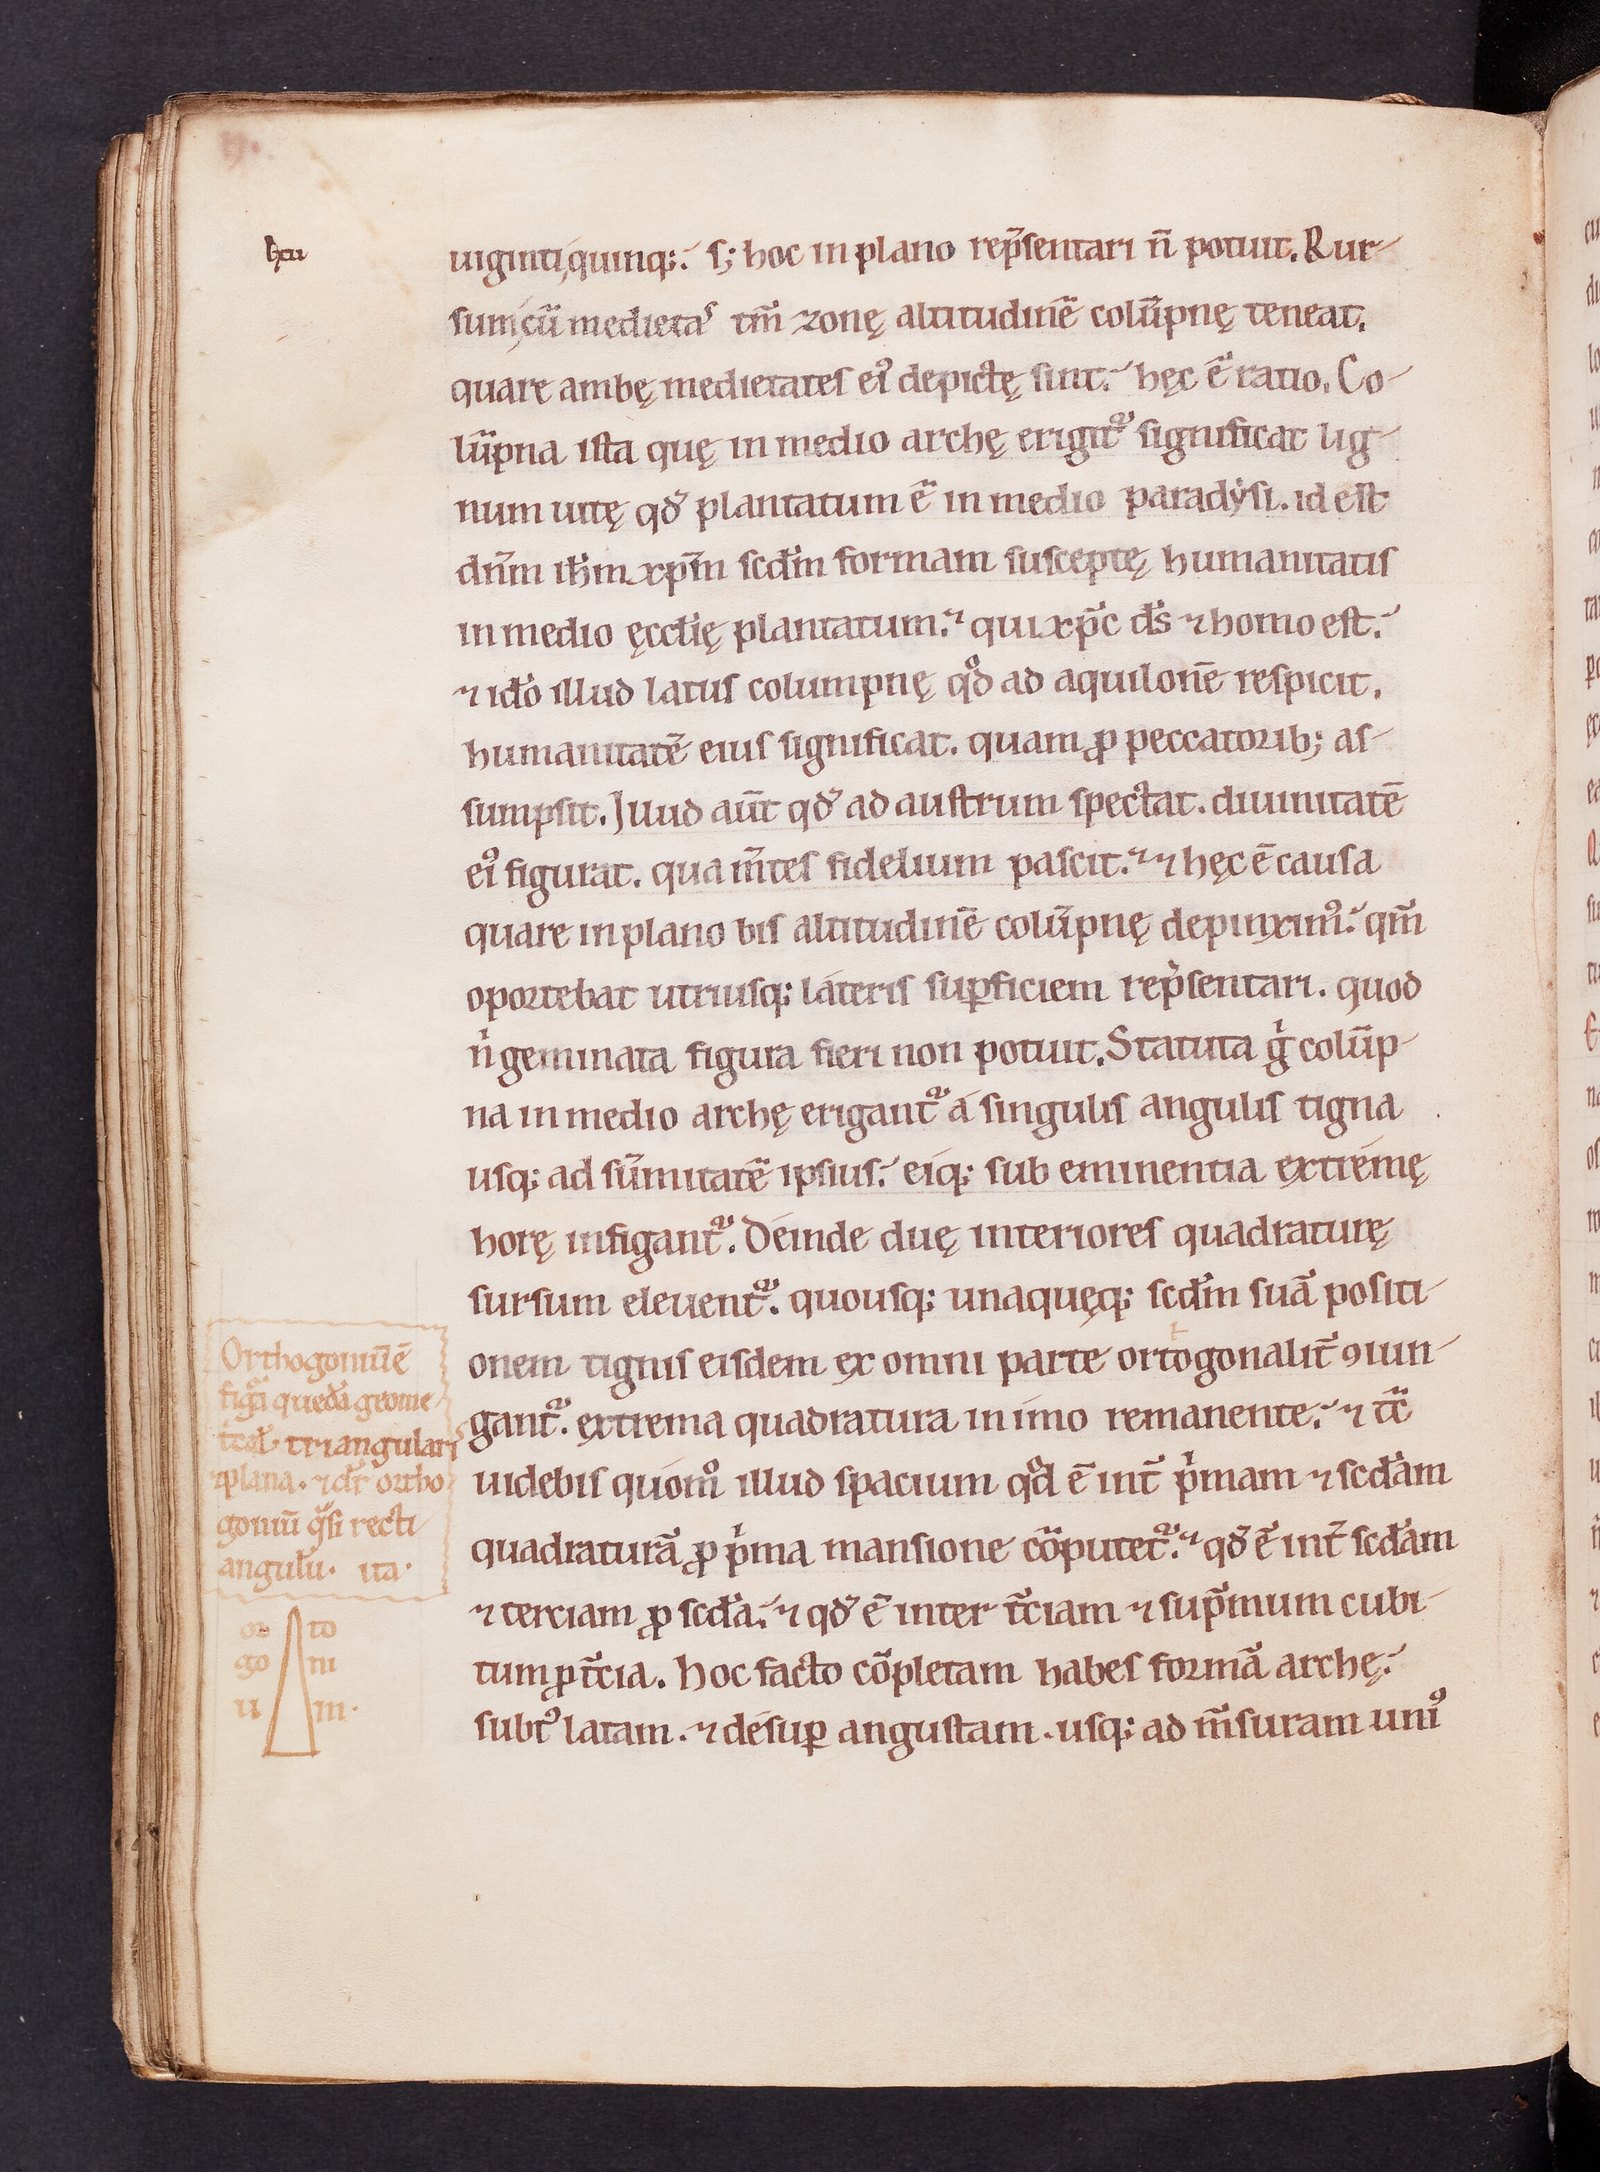 uiginti,quinq;. s; hoc in plano rep̄sentari n̄ potuit. Rur-
sum,cū medietas tm̄ zonę altitudinē colūpnę teneat.
quare ambę medietates eiꝰ depictę sint. hęc ē ratio. Co-
lūpna ista quę in medio archę erigit᷑ significat lig-
num uitę qd̄ plantatum ē in medio paradẏsi. id est
dn̄m ih̄m xp̄m scd̄m formam susceptę humanitatis
in medio ęccl̄ię plantatum. qui xp̄c d̄s ⁊ homo est.
⁊ id̄o illud latus columpnę qͦd ad aquilonē respicit.
humanitatē eius significat. quam ꝓ peccatorib; as-
sumpsit. Illud aūt qd̄ ad austrum spectat. diuinitatē
eiꝰ figurat. qua m̄tes fidelium pascit. ⁊ hęc ē causa
quare in plano bis altitudinē colūpnę depinximꝰ. qm̄
oportebat utriusq; láteris suꝑficiem rep̄sentari. quod
nͥ geminata figura fieri non potuit. Statuta gͥ colūp-
na in medio archę erigant᷑ á singulis angulis tigna
usq; ad sūmitatē ipsius. eiq; sub eminentia extremę
horę infigant᷑. Deinde duę interiores quadraturę
sursum eleuent᷑. quousq; unaquęq; scd̄m suā positi-
onem tignis eisdem ex omni parte ortogonalit̄ ꝯiun-
gant᷑. extrema quadratura in imo remanente. ⁊ tc̄
uidebis quómͦ illud spacium qͦd ē int̄ pͥmam ⁊ scd̄am
quadraturā ꝓ pͥma mansione cōputet᷑. qd̄ ē int̄ scd̄am
⁊ terciam ꝓ scd̄a. ⁊ qd̄ ē inter t̄ciam ⁊ sup̄mum cubi-
tum ꝓ t̄cia. Hoc facto cōpletam habes formā archę.
subtꝰ latam. ⁊ désuꝑ angustam. usq; ad m̄suram uniꝰ
Orthogoniū ē
figͣa quedā geome-
t̄cal̄. triangularis
plana. ⁊ dr̄ ortho
goniū qͣsi recti
angul̄u. ita.
or to
go ni
u m.